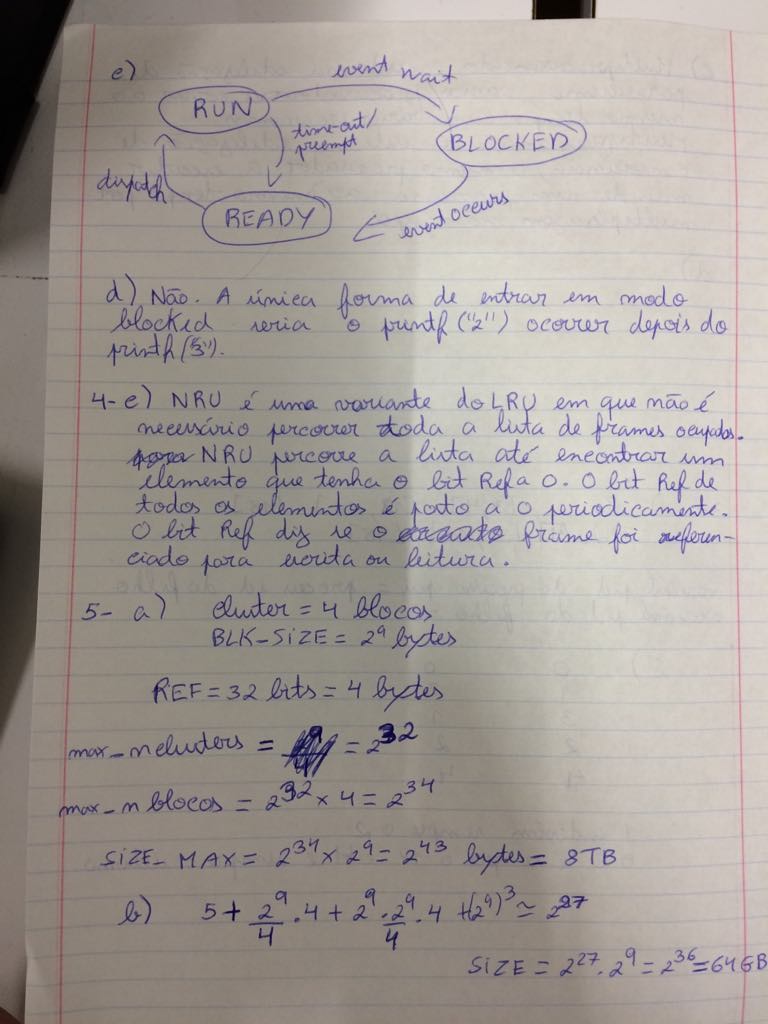 c)
event wait
RUN
time-out/
preempt
BLOCKED
dispatch
READY
event occurs
d) Não. A única forma de entrar em modo
blocked seria o printf("2") ocorrer depois do
printf("3").
4- e) NRU é uma variante do LRU em que não é
necessário percorrer toda a lista de frames ocupados.
NRU percorre a lista até encontrar um
elemento que tenha o bit Ref a 0. O bit Ref de
todos os elementos é posto a 0 periodicamente.
O bit Ref diz se o frame foi referen-
ciado para escrita ou leitura.
5- a) cluster = 4 blocos
BLK-SIZE = 2⁹ bytes
REF = 32 bits = 4 bytes
max_nclusters = = 2³²
max_n blocos = 2³² × 4 = 2³⁴
SIZE_MAX = 2³⁴ × 2⁹ = 2⁴³ bytes = 8TB
b) 5 + 2⁹/4 . 4 + 2⁹ . 2⁹/4 . 4 + (2⁹)³ ≃ 2²⁷
SIZE = 2²⁷ . 2⁹ = 2³⁶ = 64GB